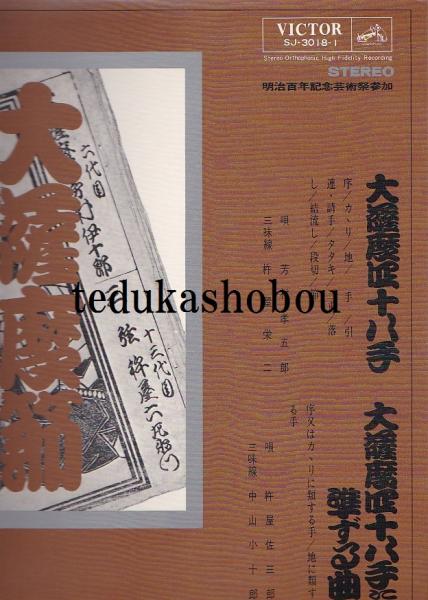 VICTOR
SJ-3018-1
Stereo-Orthophonic High Fidelity Recording
STEREO
明治百年記念芸術祭参加
大薩摩四十八手
序/カヽリ/地/
手/引
連・請手/タタキ/
落
し/結流し/段切/
唄 芳
孝五郎
三味線 杵
栄二
大薩摩四十八手に
準ずる曲
序又はカヽリに類する手/地に類す
る手
唄 杵屋佐三郎
三味線 中山小十郎
大薩摩
六代目
伊十郎
十三代目
弦 杵屋六左衛門
tedukashobou